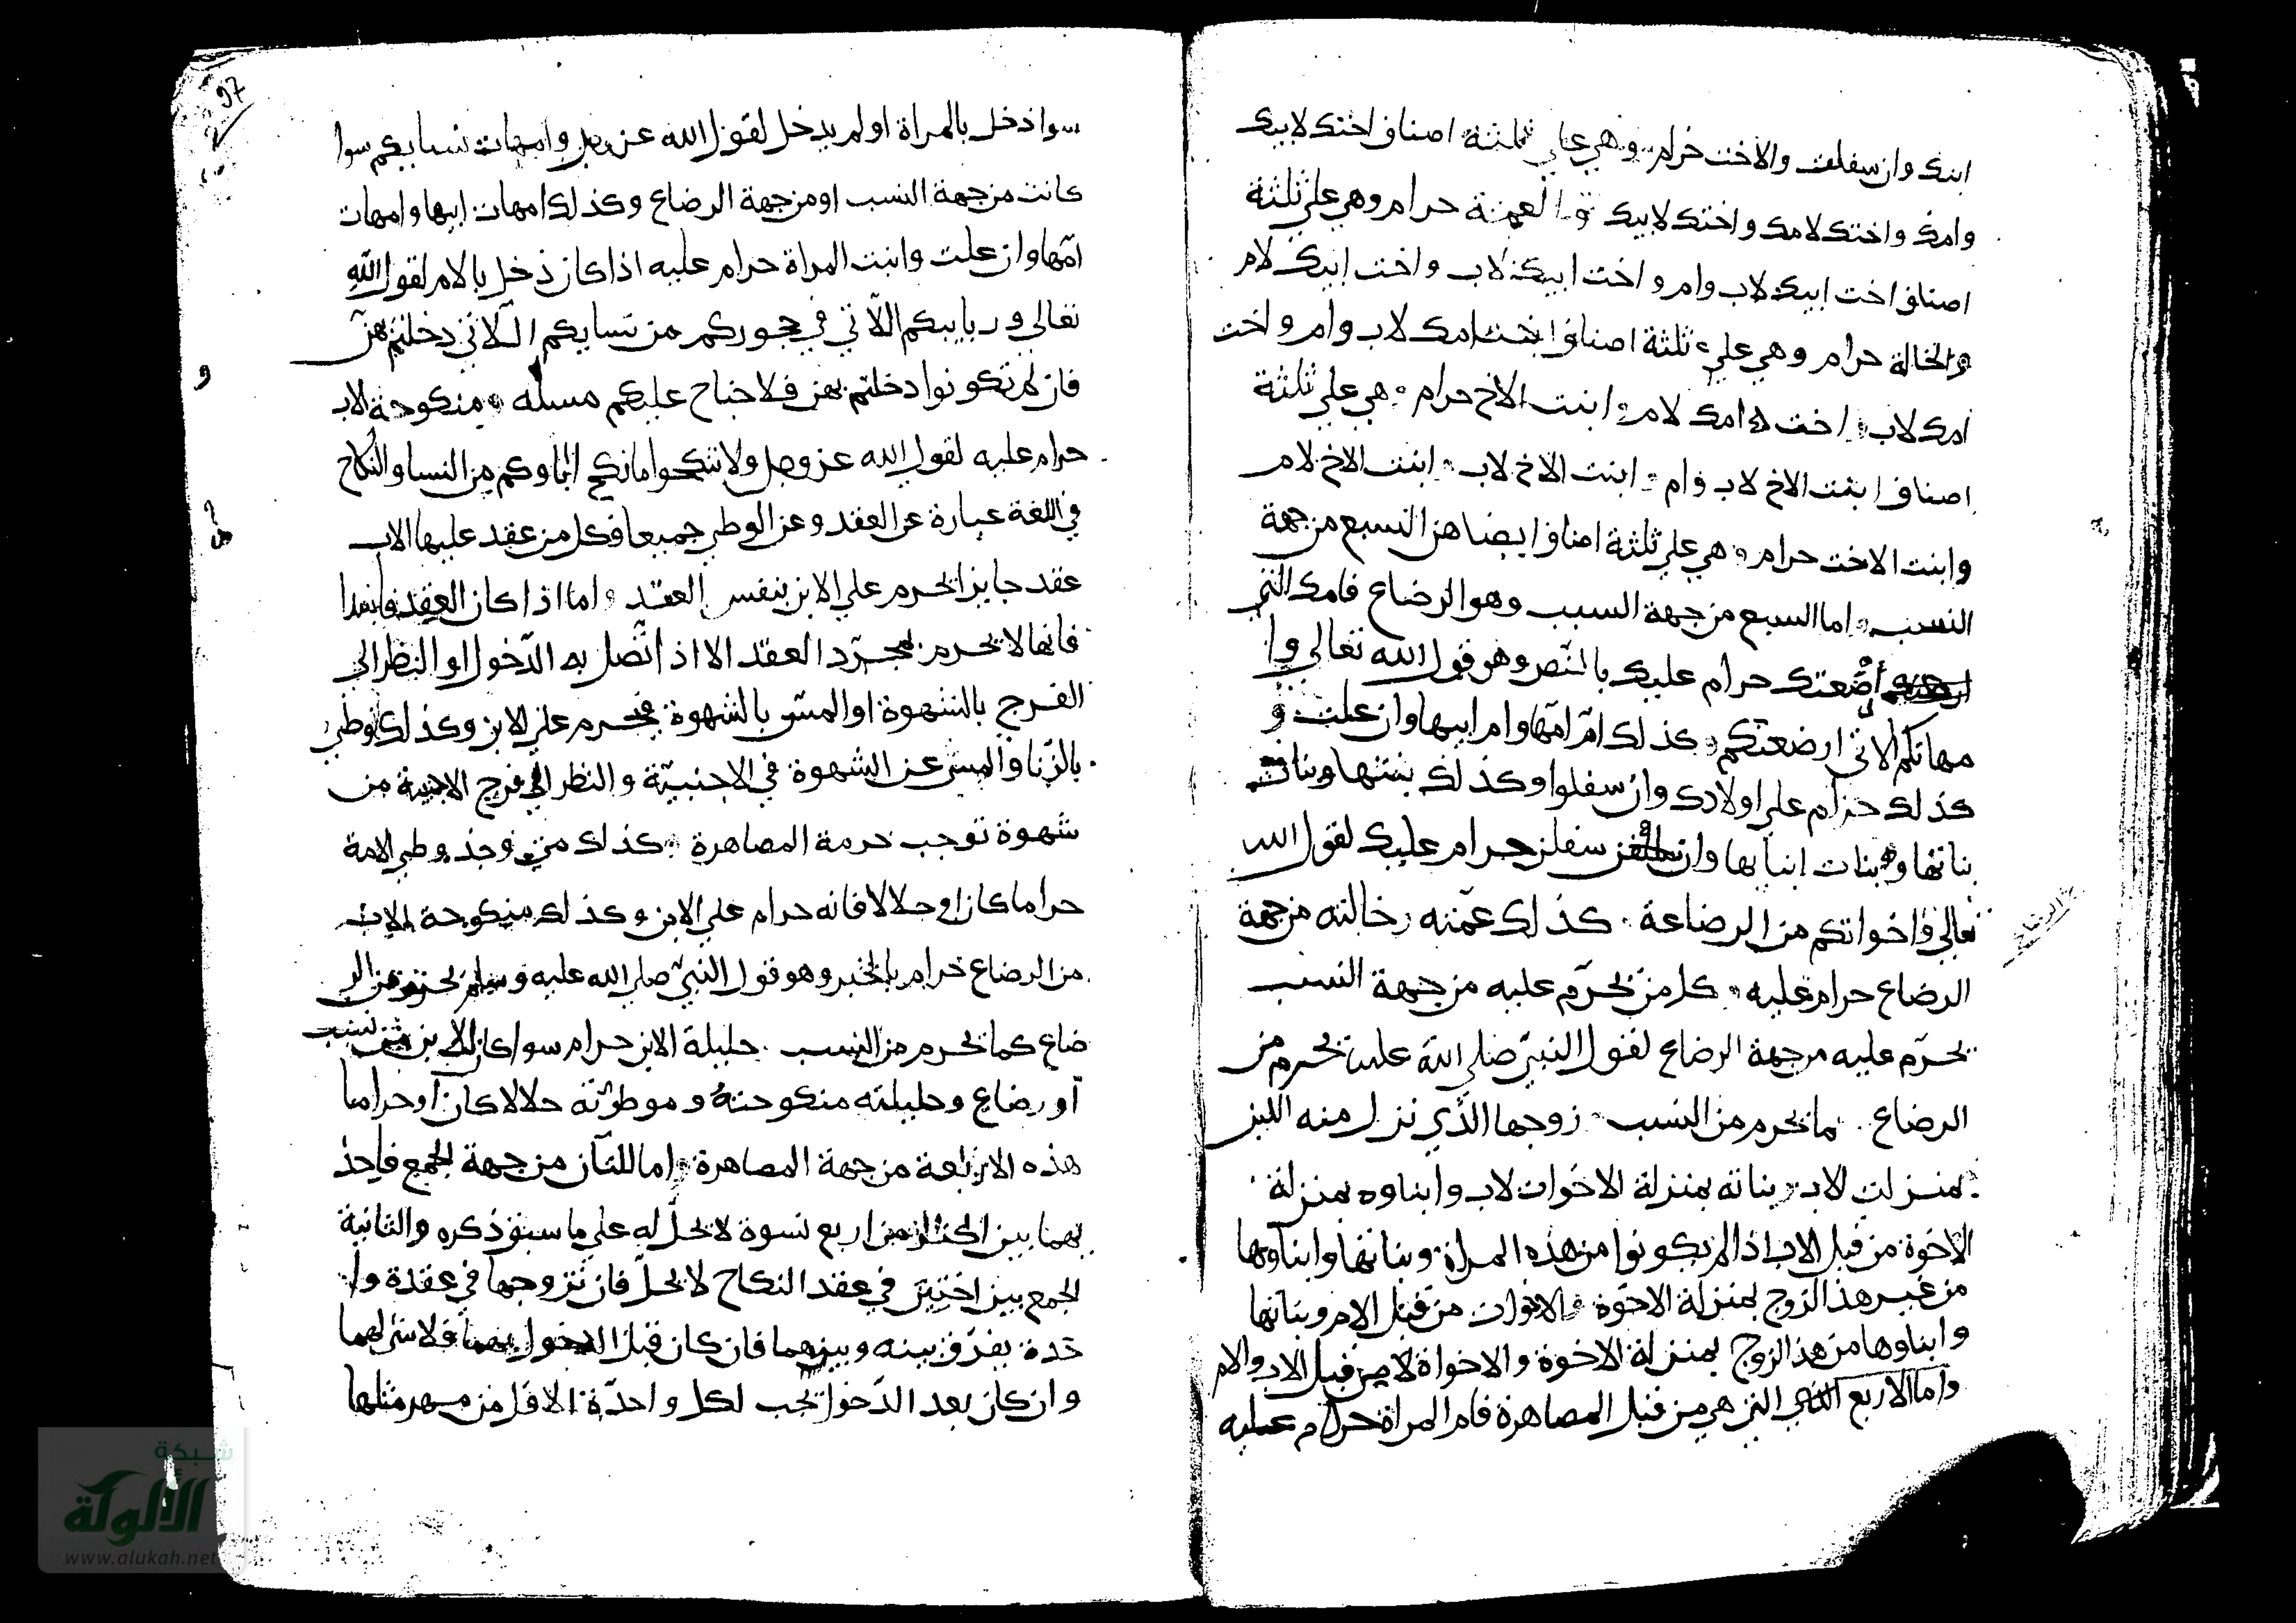 ابنك وان سفلت والاخت حرام وهي علي ثلثة اصناف اختك لابيك
وامك واختك لامك واختك لابيك العمة حرام وهي علي ثلثة
اصناف اخت ابيك لاب وام واخت ابيك لاب واخت ابيك لام
والخالة حرام وهي علي ثلثة اصناف اخت امك لاب وام واخت
امك لاب اخت امك لام ابنت الاخ حرام هي علي ثلثة
اصناف ابنت الاخ لاب وام ابنت الاخ لاب ابنت الاخ لام
وابنت الاخت حرام هي علي ثلثة اصناف ايضا هن السبع من جهة
النسب اما السبع من جهة السبب وهو الرضاع فامك التي
ارضعتك حرام عليك بالنص وهو قول الله تعالي وا
مهاتكم الاتي ارضعنكم كذلك ام امها وام ابيها وان علت و
كذلك حرام علي اولادك وان سفلوا وكذلك بنتها وبنات
بناتها وبنات ابنايها وان سفلن حرام عليك لقول الله
تعالي واخواتكم من الرضاعة كذلك عمته وخالته من جهة
الرضاع حرام عليه كل من يحرم عليه من جهة النسب
يحرم عليه من جهة الرضاع لقول النبي صلي الله عليه يحرم من
الرضاع ما يحرم من النسب زوجها الذي نزل منه اللبن
بمنزلت الاب وبناته بمنزلة الاخوات لاب وابناوه بمنزلة
الاخوة من قبل الاب اذا لم يكونوا من هذه المراة وبناتها وابناوها
من غير هذا الزوج بمنزلة الاخوة والاخوات من قبل الام وبناتها
وابناوها من هذا الزوج بمنزلة الاخوة والاخواة لا من قبل الاب والام
واما الاربع التي هي من قبل المصاهرة فام المراة حرام عليه
97
سوا دخل بالمراة اولم يدخل لقول الله عز وجل وامهات نسايكم سوا
كانت من جهة النسب او من جهة الرضاع وكذلك امهات ابيها وامهات
امها وان علت وابنت المراة حرام عليه اذا كان دخل بالام لقول الله
تعالي وربايبكم اللاتي في حجوركم من نسايكم اللاتي دخلتم بهن
فان لم تكونوا دخلتم بهن فلا جناح عليكم مسله منكوحة الاب
حرام عليه لقول الله عز وجل ولا تنكحوا ما نكح اباوكم من النسا والنكاح
في اللغة عبارة عن العقد وعن الوطي جميعا فكل من عقد عليها الاب
عقد جايز تحرم علي الابن بنفس العقد واما اذا كان العقد فاسدا
فانها لا تحرم بمجرد العقد الا اذ اتصل به الدخول او النظر الي
الفرج بالشهوة او المس بالشهوة فتحرم علي الابن وكذلك وطي
بالزنا والمس عن الشهوة في الاجنبية والنظر الي فرج الاجنبية من
شهوة توجب حرمة المصاهرة كذلك متي وجد وطي الامة
حراما كان او حلالا فانه حرام علي الابن وكذلك منكوحة الاب
من الرضاع حرام بالخبر وهو قول النبي صلي الله عليه وسلم تحرم من الر
ضاع كما تحرم من النسب حليلة الابن حرام سوا كان الابن من نسب
او رضاع وحليلته منكوحته وموطوته حلالا كان او حراما
هذه الاربعة من جهة المصاهرة اما اللتان من جهة الجمع فاحد
يهما بين اكثر من اربع نسوة لا تحل له علي ما سبق ذكره والثانية
الجمع بين اختين في عقد النكاح لا يحل فان تزوجها في عقدة وا
حدة يفرق بينه وبينهما فان كان قبل الدخول بهما فلا شي لهما
وان كان بعد الدخول تجب لكل واحدة الاقل من مهر مثلها
شبكة
الألوكة
www.alukah.net